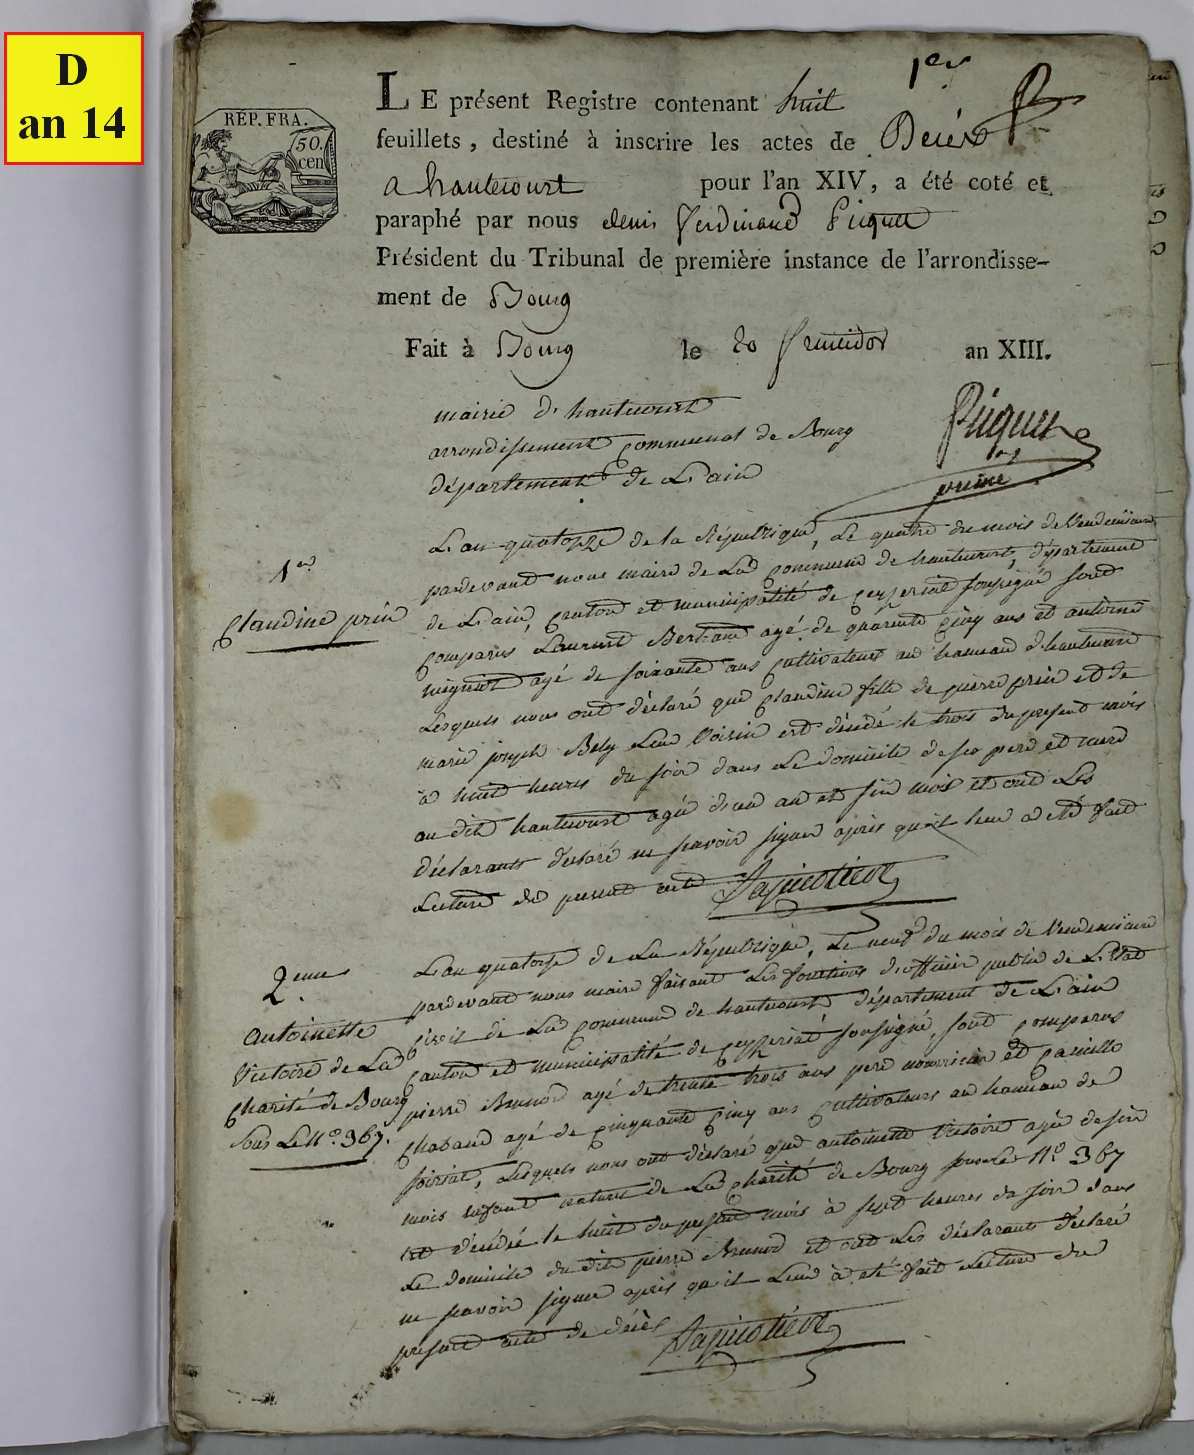 D
an 14
1er
REP. FRA.
50.
cen
LE présent Registre contenant huit
feuillets, destiné à inscrire les actes de Décès
a hautecourt pour l'an XIV, a été coté et
paraphé par nous denis ferdinand Picquet
Président du Tribunal de première instance de l'arrondisse-
ment de Bourg
Fait à Bourg le 20 fructidor an XIII.
Picquet
mairie d'hautecourt
arrondissement communal de Bourg
département de L'ain
1er
Claudine prin
L'an quatorze de la République, Le quatre du mois de Vendemiaire
pardevant nous maire de La Commune de hautecourt, département
de L'ain, Canton et municipalité de ceyzeriat soussigné sont
Comparus Laurent Bertrand agé de quarente cinq ans et antoine
agé de soixante ans Cultivateurs au hameau d'hautecourt
Lesquels nous ont déclaré que Claudine fille de pierre prin et de
marie joseph Bely Leur Voisin est décédé le trois du present mois
à huit heures du soir dans Le domicile de ses pere et mere
au dit hautecourt agée d'un an et six mois et ont Les
déclarants déclaré ne savoir signer après qu'il leur a été fait
Lecture du present acte
2eme
antoinette
Victoire de La
Charité de Bourg
sous Le No. 367.
L'an quatorze de La République, Le neuf du mois de Vendemiaire
pardevant nous maire faisant Les fonctions d'officier public de L'Etat
Civil de La Commune de hautecourt département de L'ain
Canton et municipalité de Ceyzeriat soussigné, sont Comparus
pierre Brunod agé de trente trois ans pere nourricier et Camille
Chaband agé de Cinquante Cinq ans Cultivateurs au hameau de
Lesquels nous ont déclaré que antoinette Victoire agée de six
mois enfant naturel de La Charité de Bourg sous Le No 367
est décédée le huit du present mois à sept heures du soir dans
Le domicile du dit pierre Brunod et ont Les déclarants déclaré
ne savoir signer après qu'il Leur à été fait Lecture du
present acte de décès